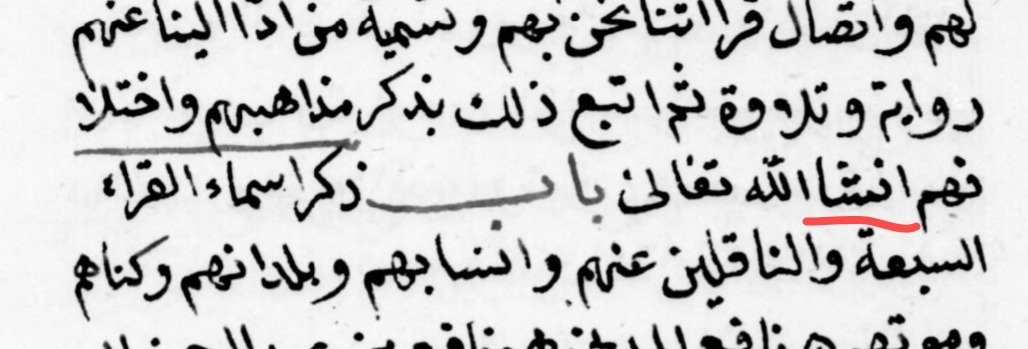 لهم واتصال قرااتنا نحن بهم وتسمية من ادا الينا عنهم
رواية وتلاوة ثم اتبع ذلك بذكر مذاهبهم واختلا
فهم انشا الله تعالى باب ذكر اسماء القراء
السبعة والناقلين عنهم وانسابهم وبلدانهم وكناهم